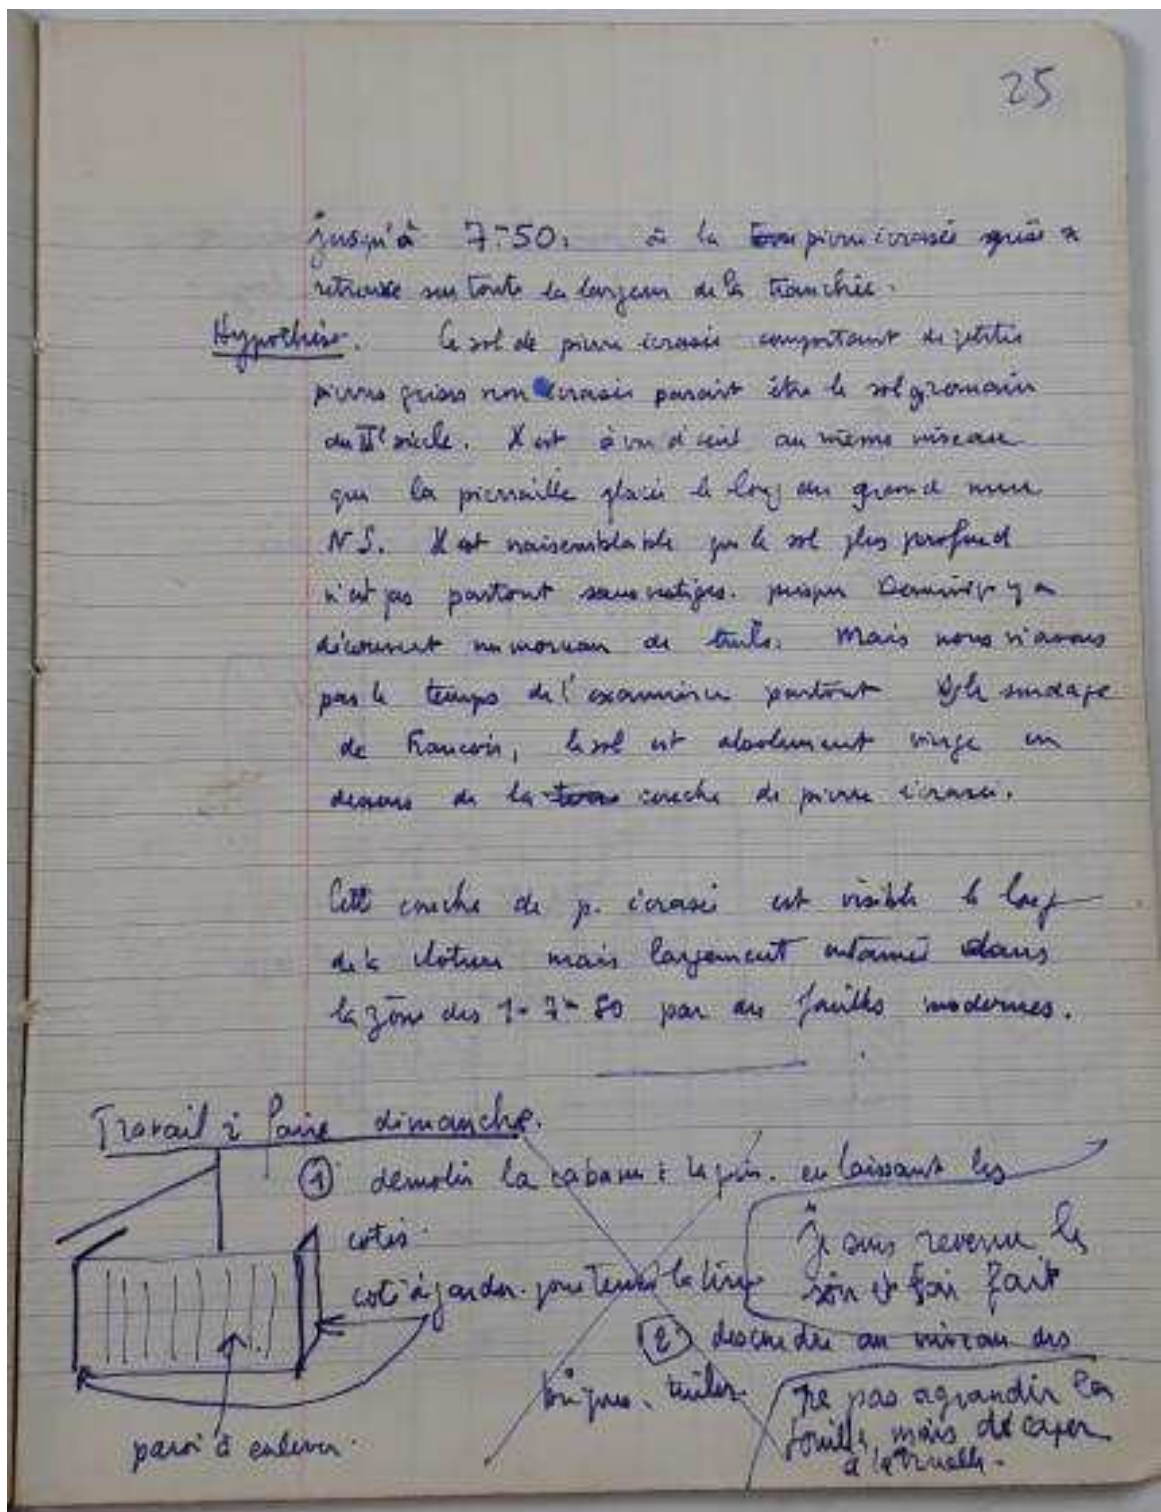 25
jusqu'à 7m50, où la pierre écrasée grise se
retrouve sur toute la largeur de la tranchée.
Hypothèse. Le sol de pierre écrasée comportant de petites
pierres grises non écrasées parait être le sol gromain
du IIe siècle. Il est à vu d'oeil au même niveau
que la pierraille placée le long du grand mur
N S. Il est vraisemblable que le sol plus profond
n'est pas partout sans vestiges. puisque y a
découvert un morceau de tuile. Mais nous n'avons
pas le temps de l'examiner partout le sondage
de François, le sol est absolument vierge en
dessous de la couche de pierre écrasée.
Cette couche de p. écrasée est visible le long
de la clôture mais largement entamée dans
la zône des 1 - 7m 50 par des fouilles modernes.
Travail à faire dimanche.
① démolir la cabane à lapin. en laissant les
cotés.
coté à garder. pour tenir la terre
Je suis revenu le
soir et j'ai fait
② descendre au niveau des
briques, tuiles.
ne pas agrandir la
fouille, mais décaper
à la truelle.
paroi à enlever.